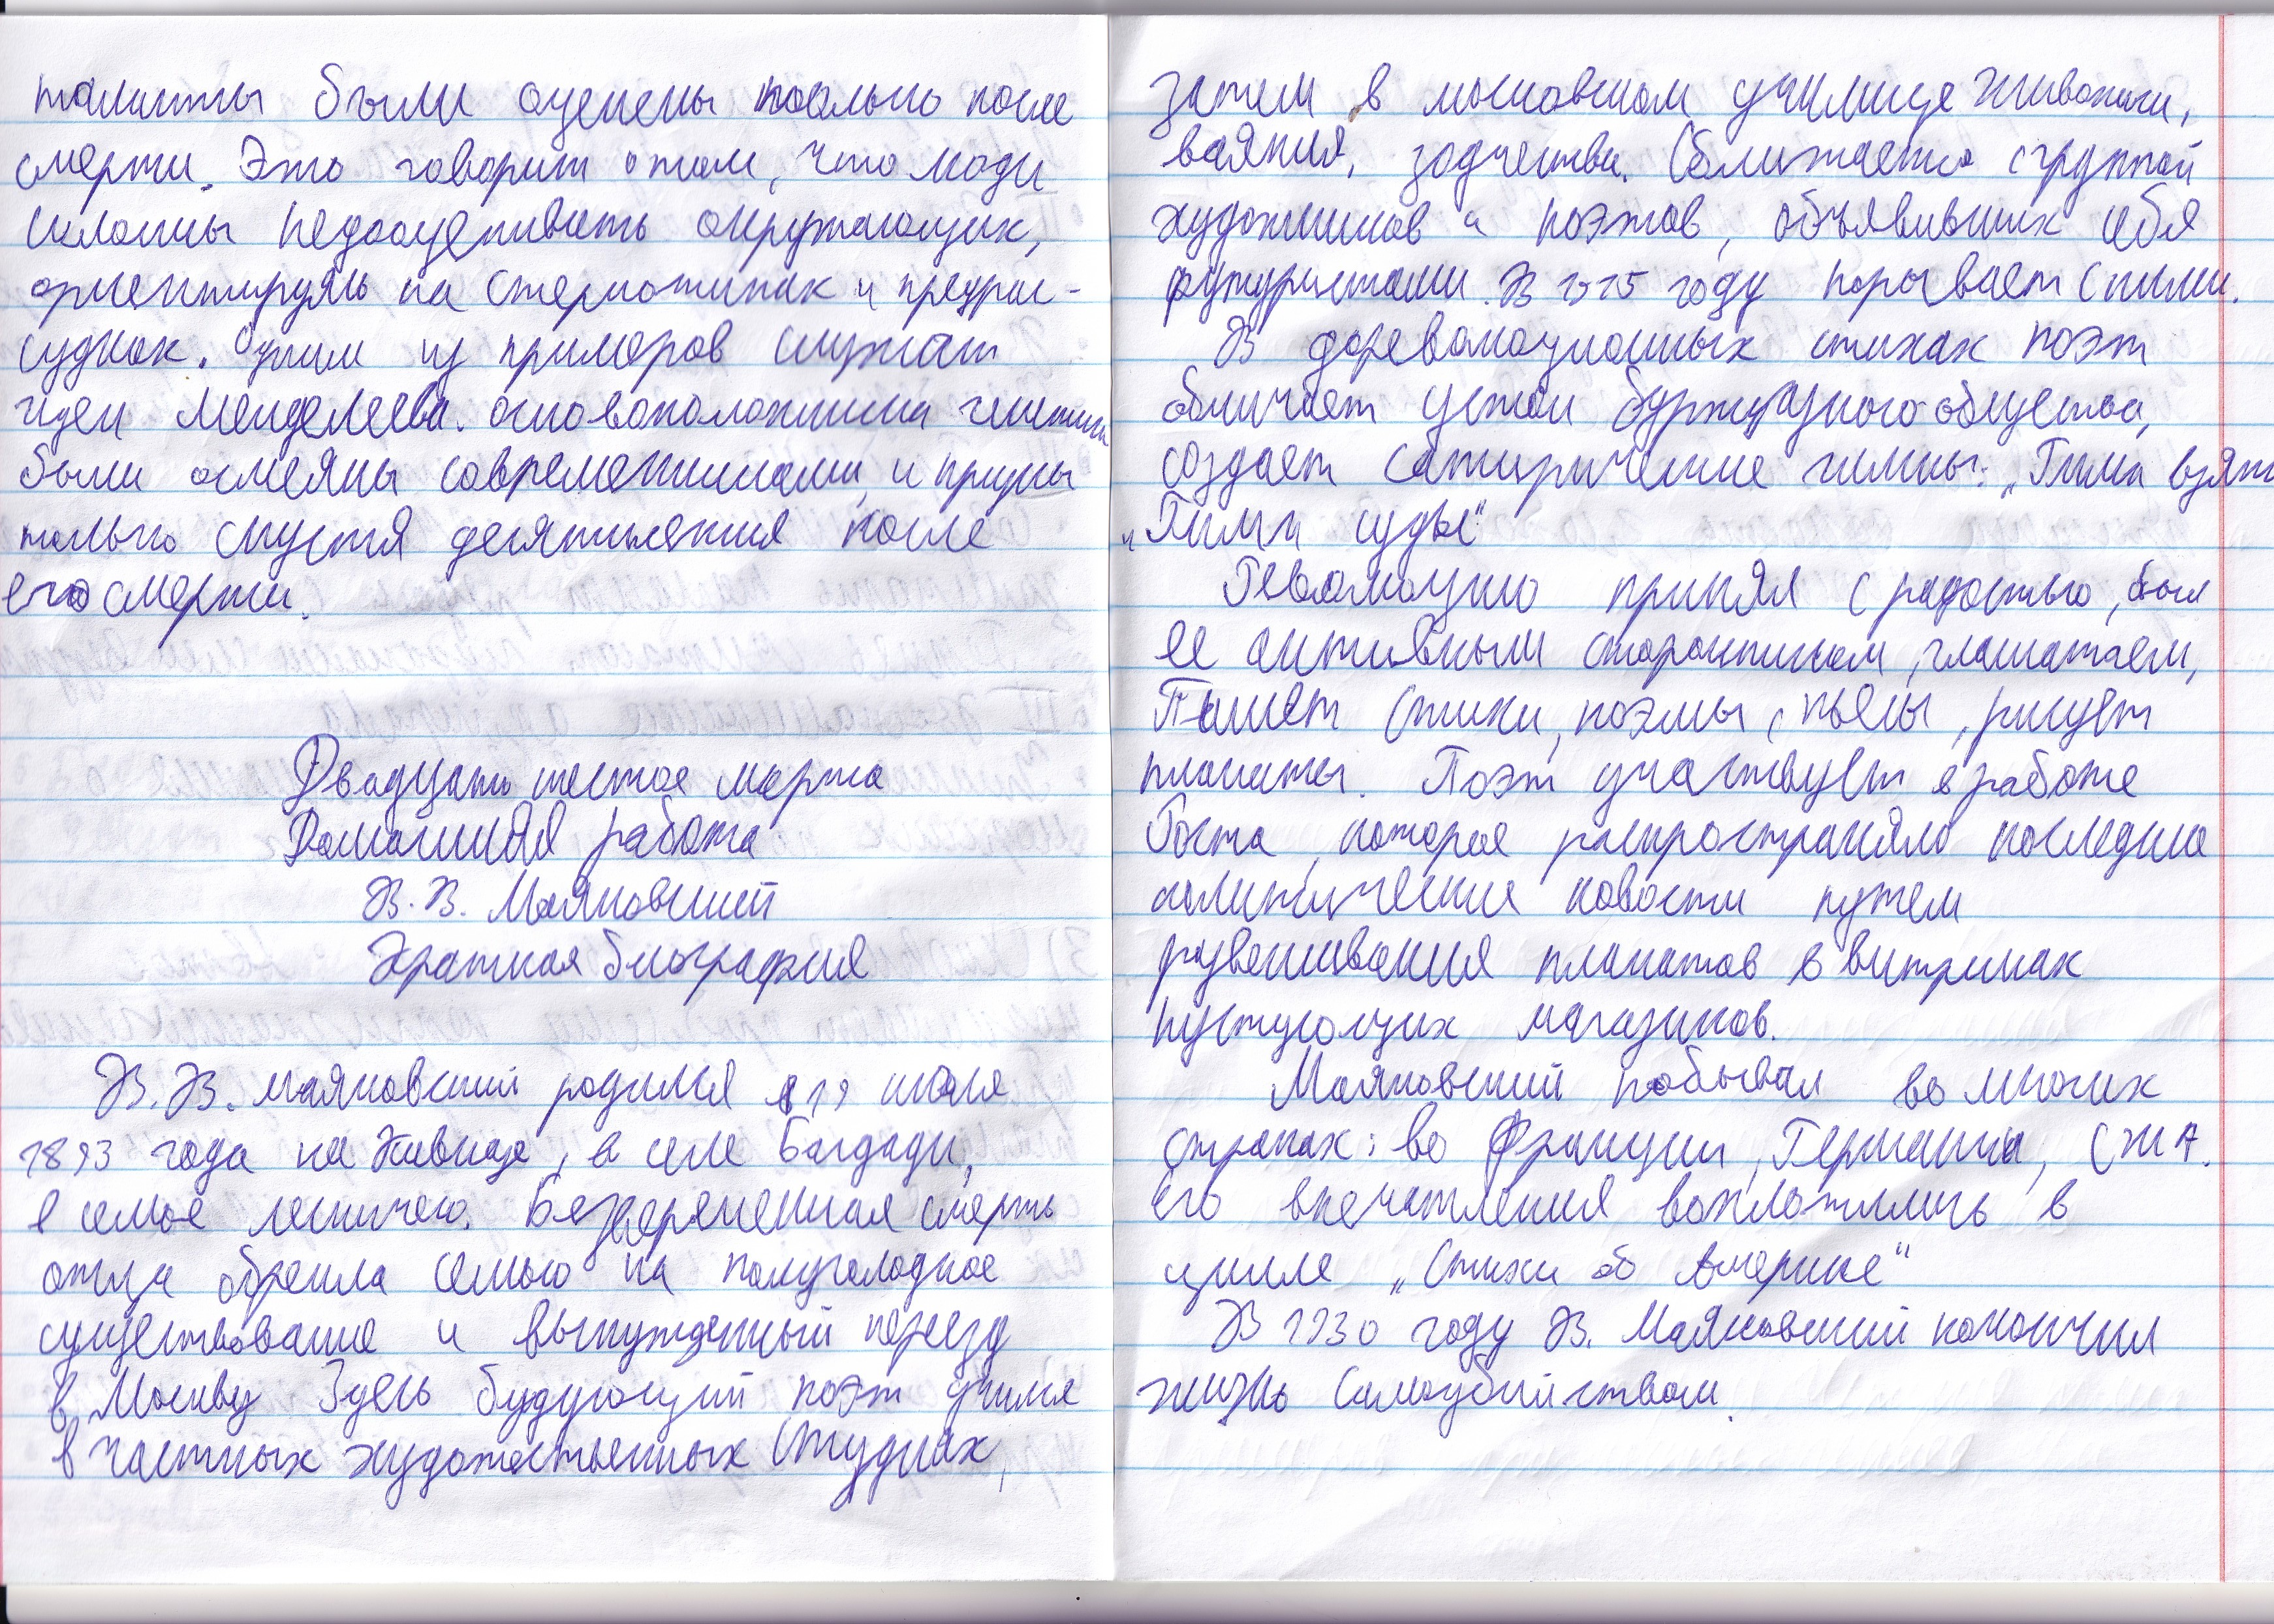 таланты были оценены только после
смерти. Это говорит о том, что люди
склонны недооценивать окружающих,
ориентируясь на стереотипах и предрас-
судках. Одним из примеров служат
идеи Менделеева. основоположника генетики
были осмеяны современниками, и признаны
только спустя десятилетия после
его смерти.
Двадцать шестое марта
Домашняя работа
В. В. Маяковский
Краткая биография
В. В. Маяковский родился 19 июля
1893 года на Кавказе, в селе Багдади,
в семье лесничего. Безвременная смерть
отца обрекла семью на полуголодное
существование и вынужденный переезд
в Москву Здесь будующий поэт учился
в частных художественных студиях,
затем в московском училище живописи,
ваяния, зодчества. Сближается с группой
художников и поэтов, объявивших себя
футуристами. В 1915 году порывает с ними.
В дореволюционных стихах поэт
обличает устои буржуазного общества,
создает сатирические гимны: „Гимн взятке
„Гимн судье“
Революцию принял с радостью, был
ее активным сторонником, глашатаем,
Пишет стихи, поэмы, пьесы, рисует
плакаты. Поэт участвует в работе
Роста, которое распространяло последние
политические новости путем
развешивания плакатов в витринах
пустующих магазинов.
Маяковский побывал во многих
странах: во Франции, Германии, США.
Его впечатления воплотились в
цикле „Стихи об Америке“
В 1930 году В. Маяковский покончил
жизнь самоубийством.